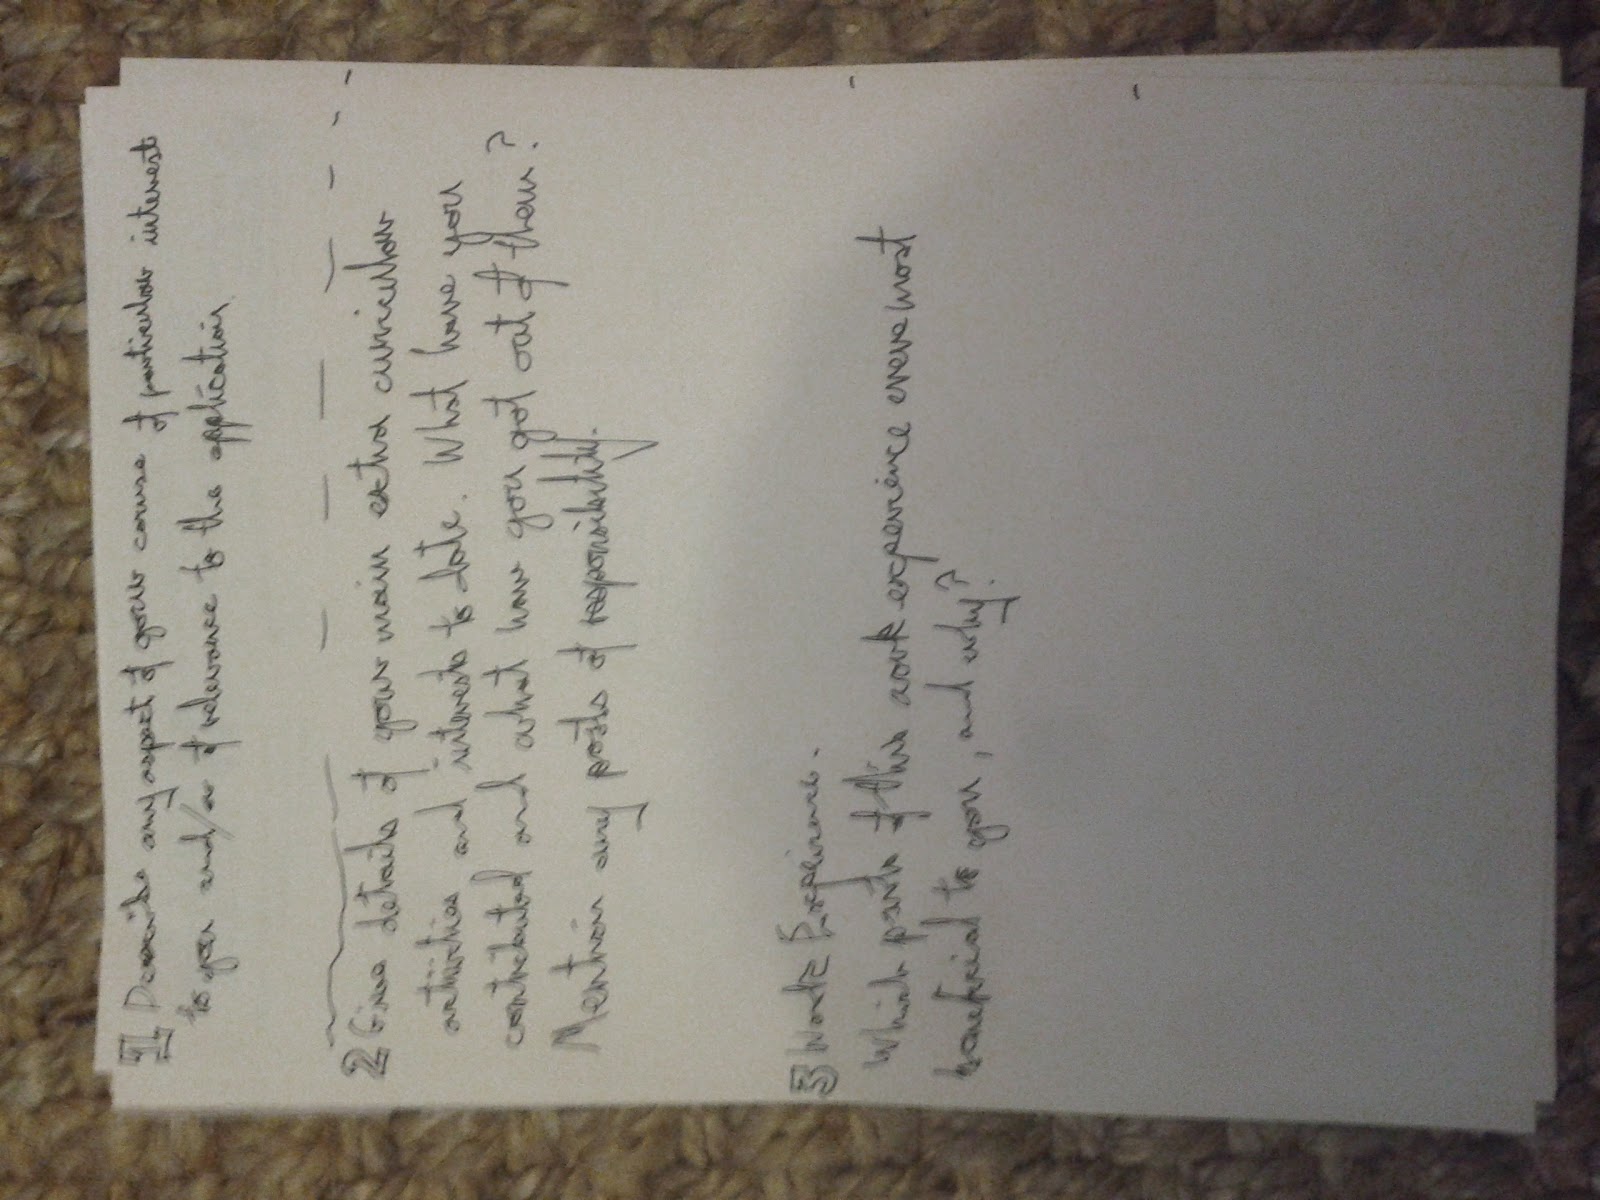 1 Describe any aspect of your course of particular interest
to you and/or of relevance to the application.
2 Give details of your main extra curricular
activities and interests to date. What have you
contributed and what have you got out of them?
Mention any posts of responsibility.
3 Work Experience.
Which parts of this work experience were most
beneficial to you, and why?